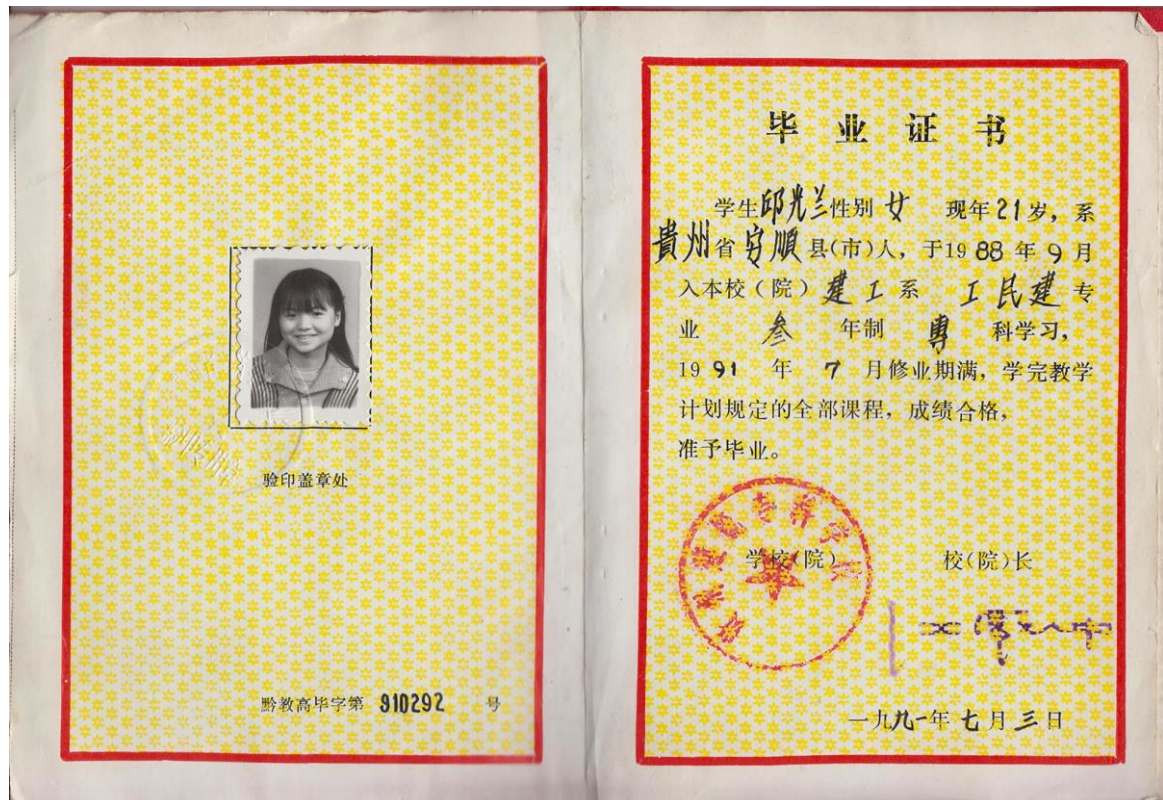 验印盖章处
黔教高毕字第 910292 号
毕业证书
学生邱光兰性别女 现年21岁，系
貴州省安順县(市)人，于1988年9月
入本校(院)建工系 工民建专
业 叁 年制 專 科学习，
1991 年 7 月修业期满，学完教学
计划规定的全部课程，成绩合格，
准予毕业。
学校(院) 校(院)长
一九九一年七月三日